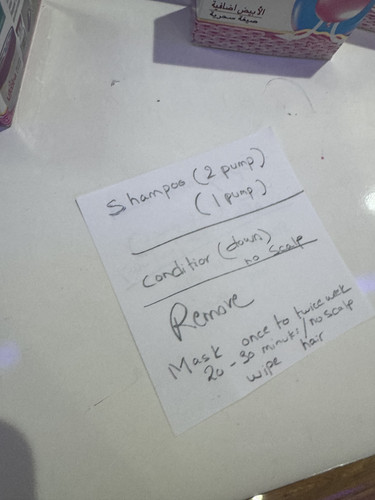 الأبيض إضافية
صيغة سحرية
Shampoo (2 pump)
(1 pump)
conditior (down)
no scalp
Remove
Mask once to twice wek
20-30 minuts/no scalp
wipe hair